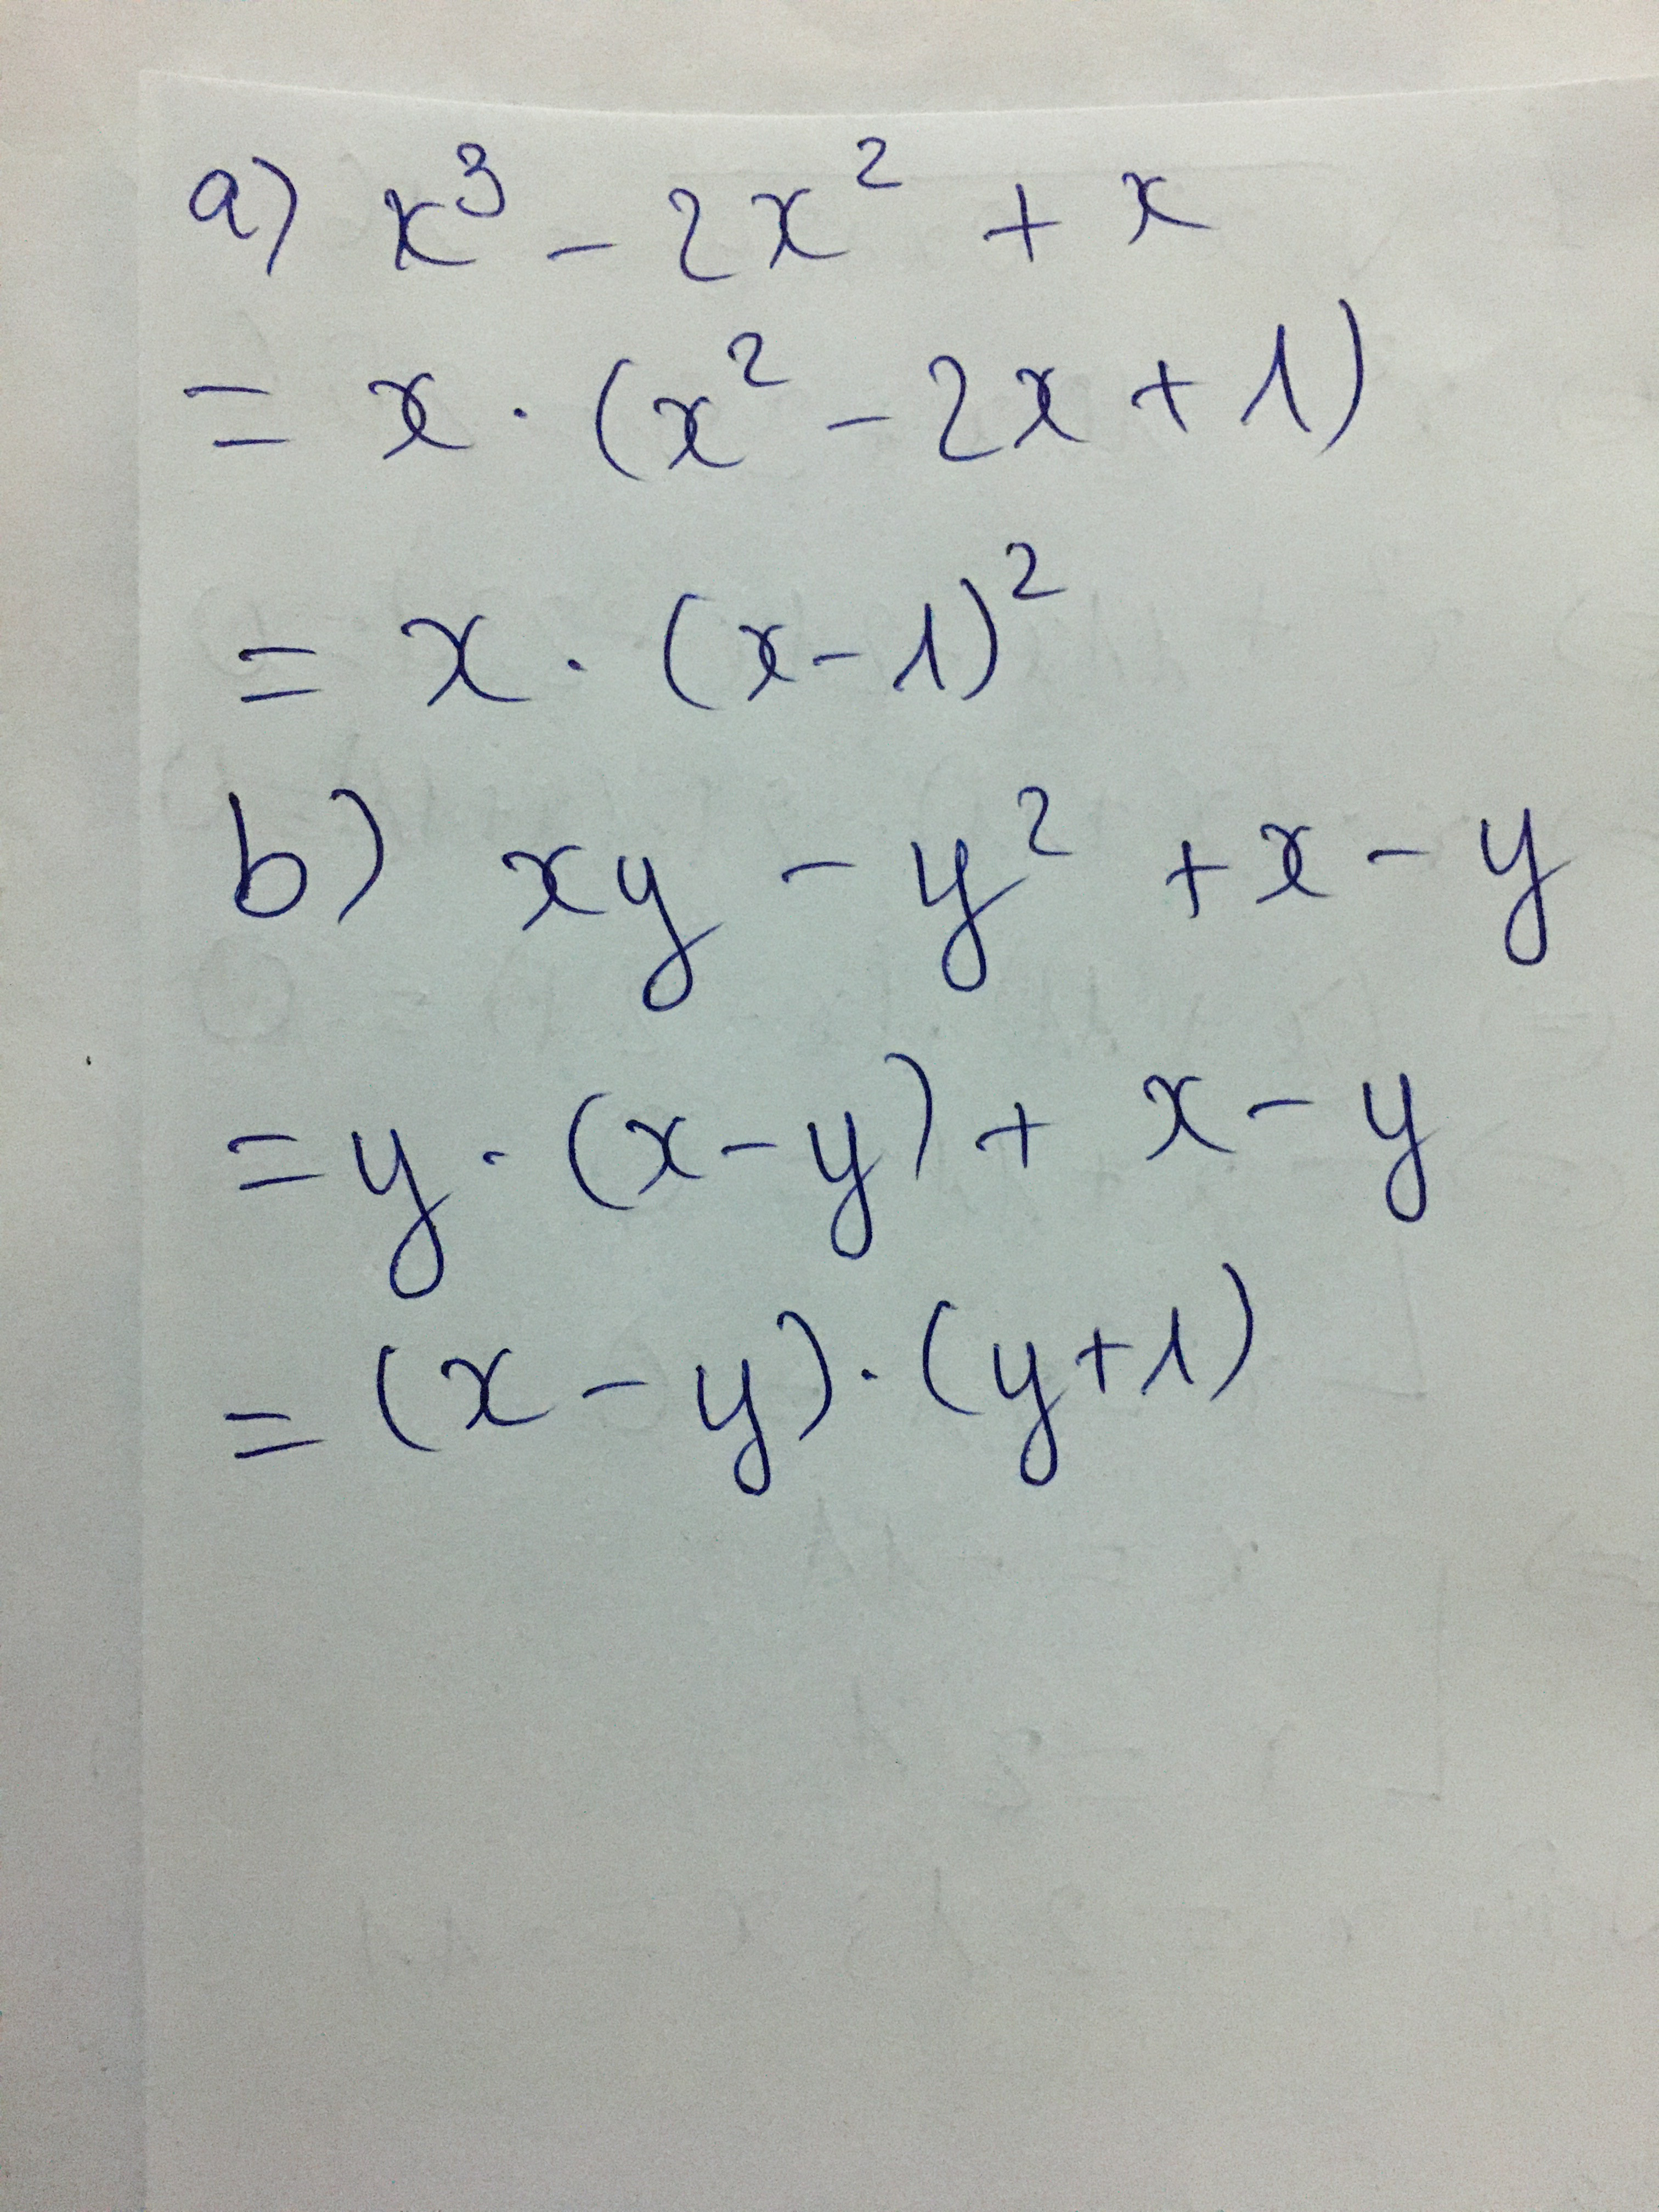 a) x³ - 2x² + x
= x · (x² - 2x + 1)
= x · (x - 1)²
b) xy - y² + x - y
= y · (x - y) + x - y
= (x - y) · (y + 1)